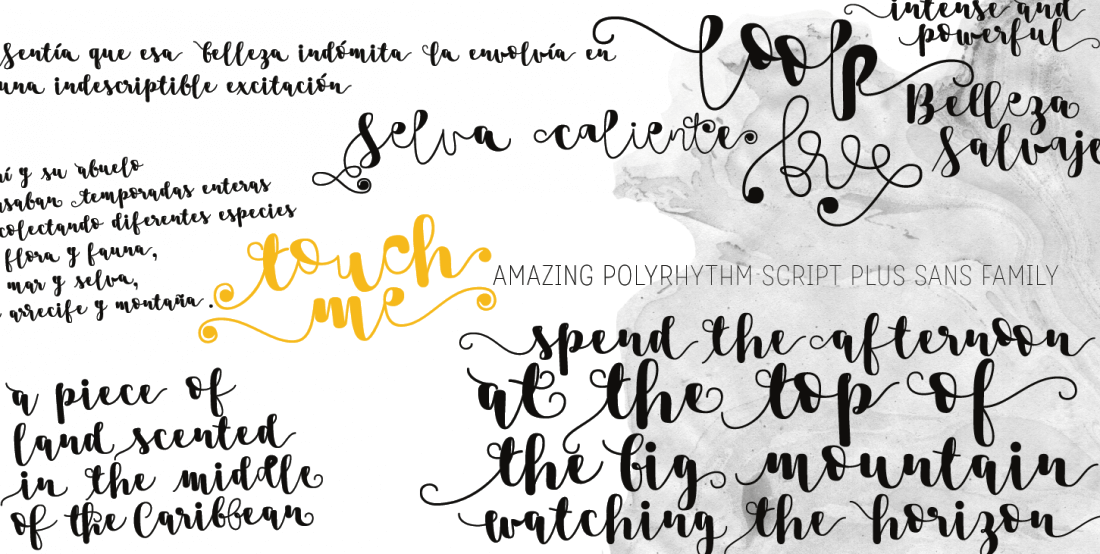 Sentía que esa belleza indómita la envolvía en
una indescriptible excitación
loop
intense and
powerful
Belleza
Salvaje
Selva caliente
y su abuelo
temporadas enteras
colectando diferentes especies
flora y fauna,
mar y selva,
arrecife y montaña.
touch
me
AMAZING POLYRHYTHM SCRIPT PLUS SANS FAMILY
spend the afternoon
at the top of
the big mountain
watching the horizon
a piece of
land scented
in the middle
of the Caribbean